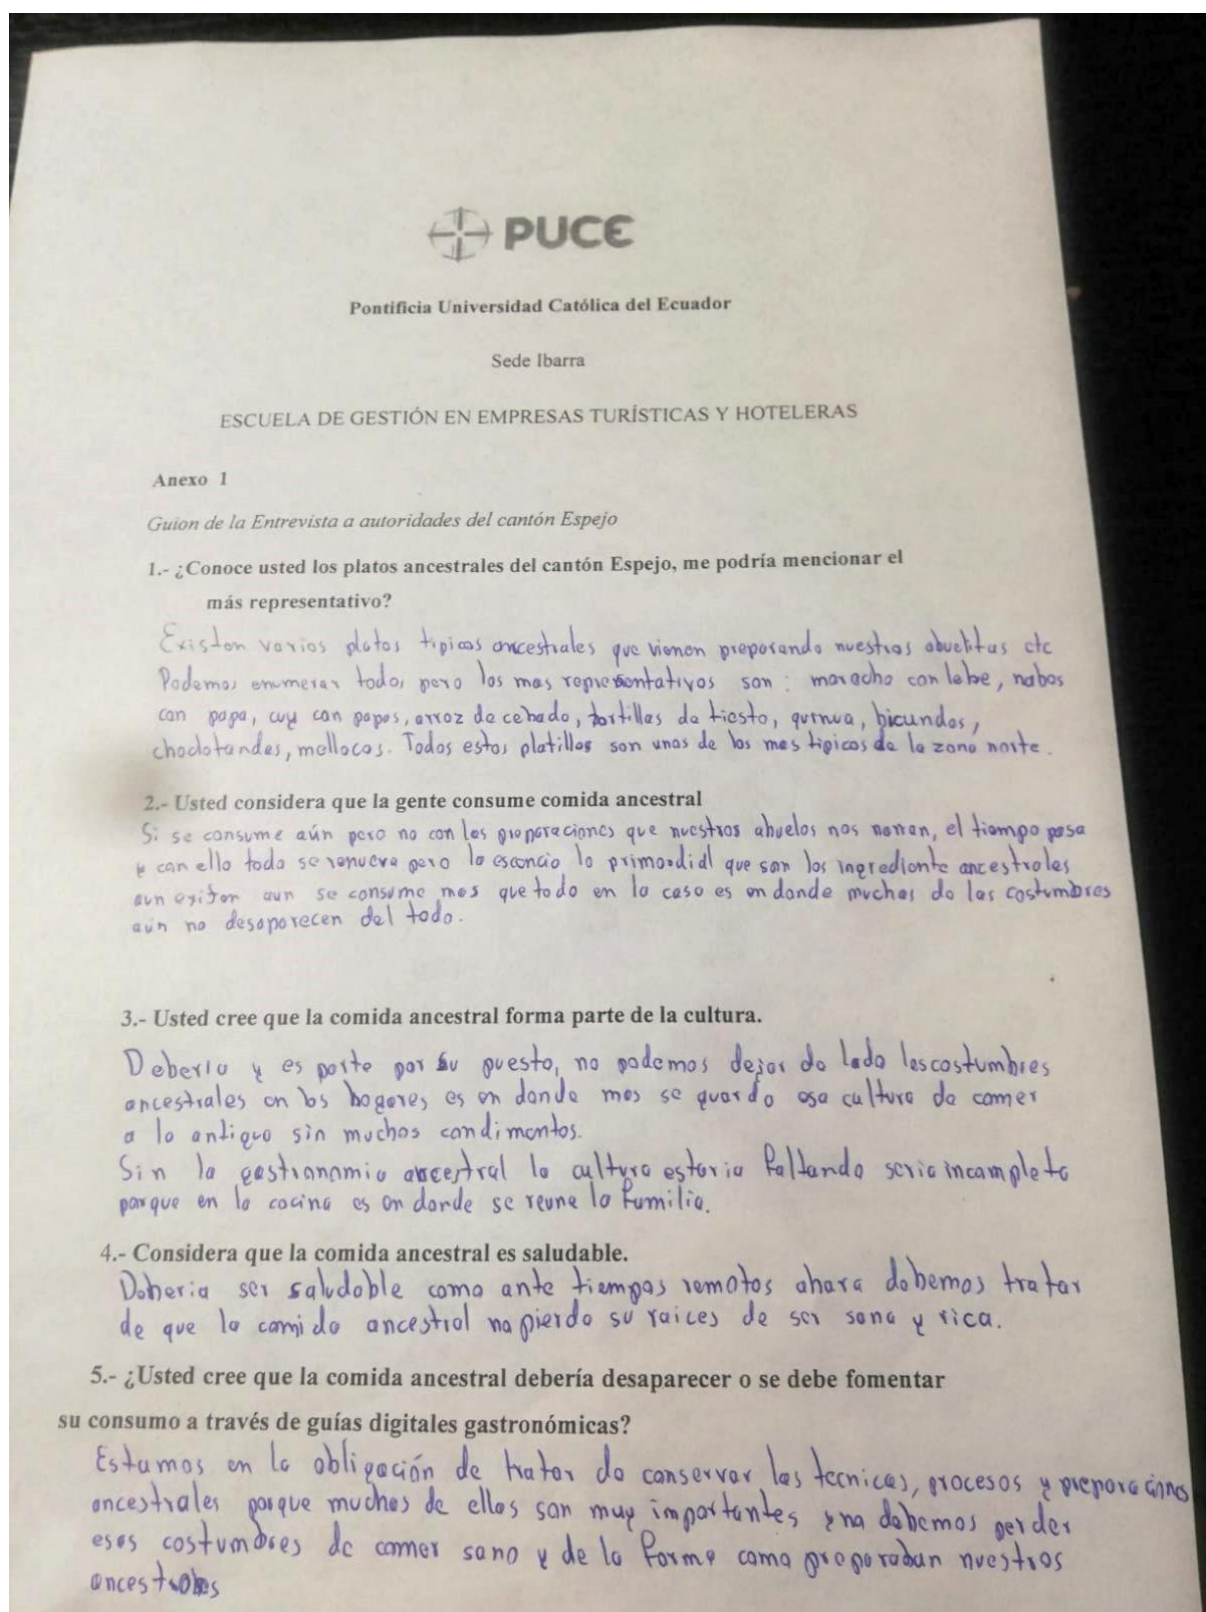 PUCE
Pontificia Universidad Católica del Ecuador
Sede Ibarra
ESCUELA DE GESTIÓN EN EMPRESAS TURÍSTICAS Y HOTELERAS
Anexo 1
Guion de la Entrevista a autoridades del cantón Espejo
1.- ¿Conoce usted los platos ancestrales del cantón Espejo, me podría mencionar el
más representativo?
Existen varios platos tipicos ancestrales que vienen preparando nuestras abuelitas etc
Podemos enumerar todo, pero los mas representativos son: moracho con leche, nabos
con papa, cuy con papas, arroz de cebada, tortillas de tiesto, quinua, bicundos,
choclotandas, mellocos. Todos estos platillos son unos de los mas tipicos de la zona norte.
2.- Usted considera que la gente consume comida ancestral
Si se consume aún pero no con las preparaciones que nuestros abuelos nos narran, el tiempo pasa
y con ello todo se renueva pero la esencia lo primordial que son los ingrediente ancestrales
aun exiten aun se consume mas que todo en la casa es en donde muchas de las costumbres
aún no desaparecen del todo.
3.- Usted cree que la comida ancestral forma parte de la cultura.
Deberia y es parte por su puesto, no podemos dejar de lado las costumbres
ancestrales en los hogares es en donde mas se guarda esa cultura de comer
a lo antiguo sin muchos condimentos.
Sin la gastronomia ancestral la cultura estaria faltando seria incompleta
porque en la cocina es en donde se reune la familia.
4.- Considera que la comida ancestral es saludable.
Deberia ser saludable como ante tiempos remotos ahora debemos tratar
de que la comida ancestral no pierda su raices de ser sana y rica.
5.- ¿Usted cree que la comida ancestral debería desaparecer o se debe fomentar
su consumo a través de guías digitales gastronómicas?
Estamos en la obligación de tratar de conservar las tecnicas, procesos y preparaciones
ancestrales porque muchas de ellas son muy importantes y no debemos perder
esas costumbres de comer sano y de la forma como preparaban nuestros